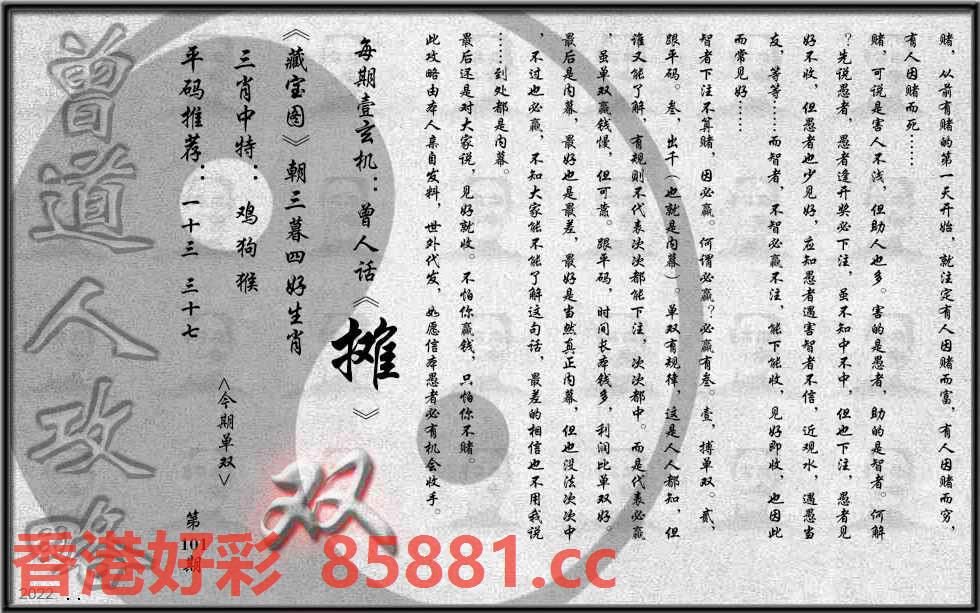 赌，从前有赌的第一天开始，就注定有人因赌而富，有人因赌而穷，
有人因赌而死……
赌，可说是害人不浅，但助人也多。害的是愚者，助的是智者。何解
？先说愚者，愚者逢开奖必下注，虽不知中不中，但也下注，愚者见
好不收，但愚者也少见好，应知愚者遇害智者不信，近观水，遇愚当
友，等等……而智者，不智必赢不注，能下能收，见好即收，也因此
而常见好……
智者下注不算赌，因必赢。何谓必赢？必赢有叁。壹，搏单双。贰，
跟平码。叁，出千（也就是内幕）。单双有规律，这是人人都知，但
谁又能了解，有规则不代表次次都能下注，次次都中。而是代表必赢
，虽单双赢钱慢，但可靠。跟平码，时间长本钱多，利润比单双好。
最后是内幕，最好也是最差，最好是当然真正内幕，但也没法次次中
，不过也必赢，不知大家能不能了解这句话，最差的相信也不用我说
……到处都是内幕。
最后还是对大家说，见好就收。不怕你赢钱，只怕你不赌。
此攻略由本人亲自发料，世外代发，如愿信本愚者必有机会收手。
每期壹玄机：曾人话《摊》
《藏宝图》朝三暮四好生肖
三肖中特：鸡狗猴
平码推荐：一十三 三十七
<今期单双>
双
第101期
曾道人攻略
香港好彩 85881.cc
2022